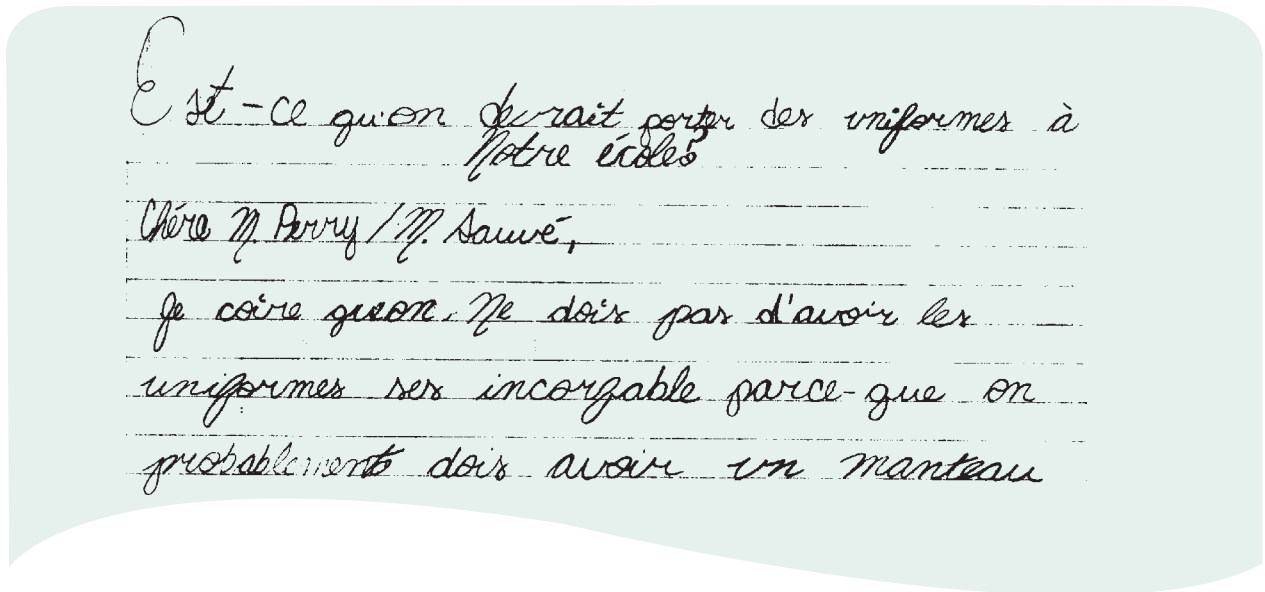 Est-ce qu'on devrait porter des uniformes à
Notre écoles?
Chére M. Perry / M. Sauvé,
Je coire queon. Ne dois pas d'avoir les
uniformes ses incorzable parce-que on
probablements dois avoir un manteau